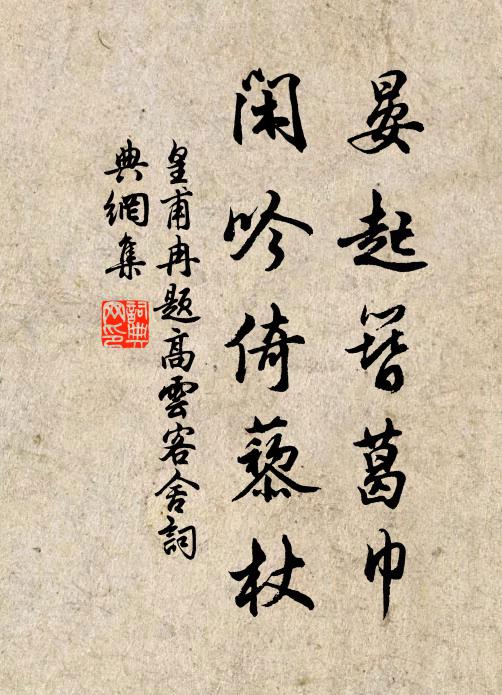 晏起簪葛巾
閑吟倚藜杖
皇甫冉題高雲客舍詞
典網集
詞典
网印